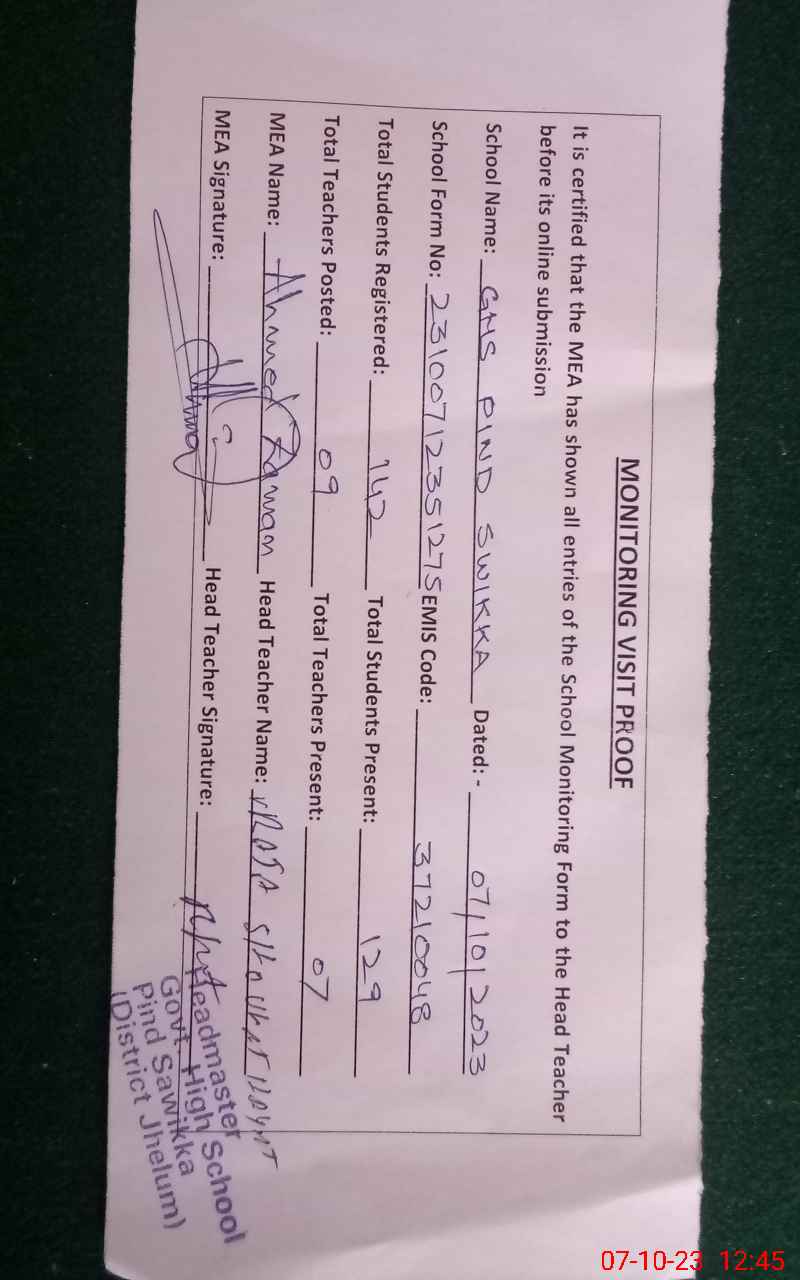 MONITORING VISIT PROOF
It is certified that the MEA has shown all entries of the School Monitoring Form to the Head Teacher
before its online submission
School Name: GHS PIND SWIKKA Dated: - 07/10/2023
School Form No: 2310071235127S EMIS Code: 37210048
Total Students Registered: 142 Total Students Present: 129
Total Teachers Posted: 09 Total Teachers Present: 07
MEA Name: Ahmed Rawan Head Teacher Name: RAJA
MEA Signature: Head Teacher Signature:
Headmaster
Govt. High School
Pind Sawikka
(District Jhelum)
07-10-23 12:45